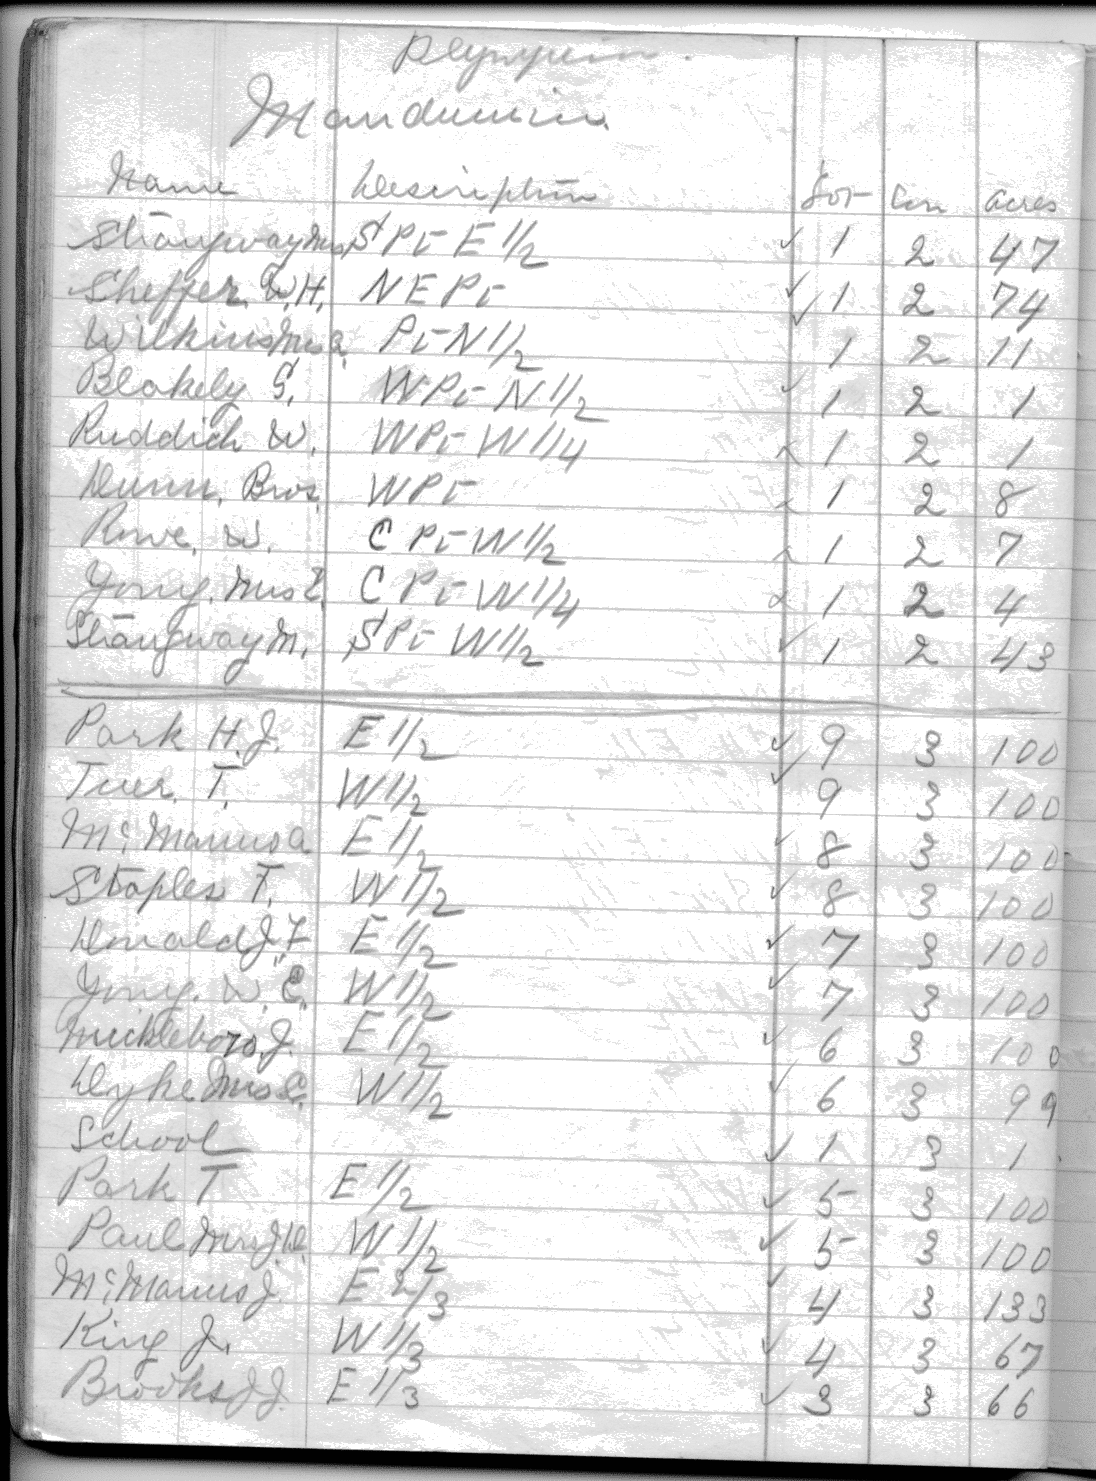 Mandumin.
Name Description Lot Con acres
Strangway Mrs S Pt E 1/2 ✓ 1 2 47
Sheffer. W.H. N E Pt ✓ 1 2 74
Wilkins Mrs a. Pt N 1/2 ✓ 1 2 11
Blakely S. W Pt N 1/2 ✓ 1 2 1
Ruddich W. W Pt W 1/4 1 2 1
Dunn. Bros. W Pt 1 2 8
Rowe. W. C Pt W 1/2 1 2 7
Yong. Mrs E. C Pt W 1/4 1 2 4
Strangway M. S Pt W 1/2 ✓ 1 2 43
Park H.J. E 1/2 ✓ 9 3 100
T. W 1/2 ✓ 9 3 100
McManus a E 1/2 ✓ 8 3 100
Staples F. W 1/2 ✓ 8 3 100
Donald J.F. E 1/2 ✓ 7 3 100
Yong. W.E. W 1/2 ✓ 7 3 100
Mickleboro J. E 1/2 ✓ 6 3 100
Dyke Mrs W 1/2 ✓ 6 3 99
School ✓ 1 3 1
Park T E 1/2 ✓ 5 3 100
Paul Mrs J.D. W 1/2 ✓ 5 3 100
McManus J. E 2/3 ✓ 4 3 133
King J. W 1/3 ✓ 4 3 67
Brooks J J. E 1/3 ✓ 3 3 66